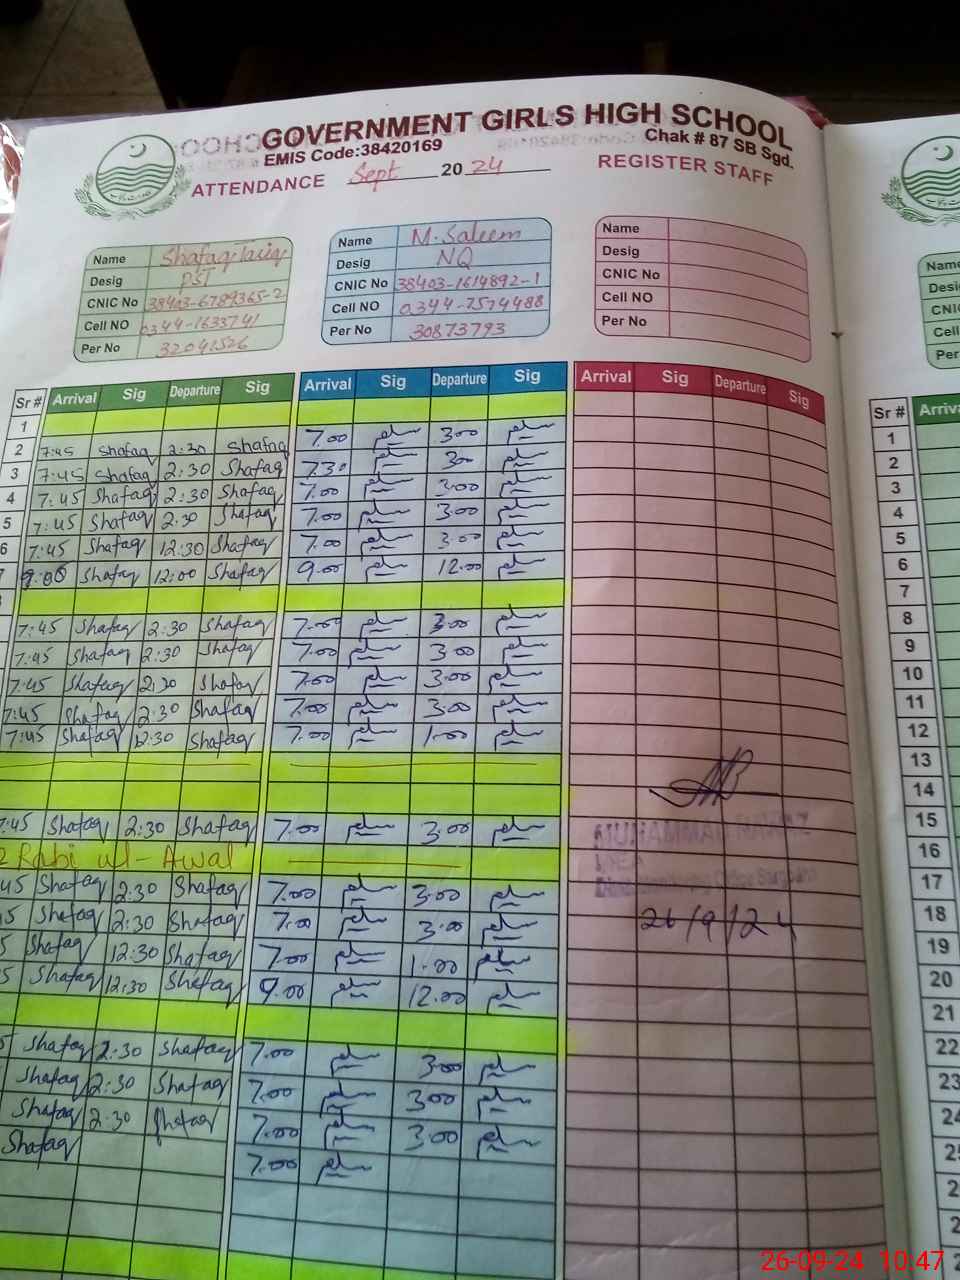 GOVERNMENT GIRLS HIGH SCHOOL
EMIS Code:38420169 Chak # 87 SB Sgd.
ATTENDANCE Sept 20 24 REGISTER STAFF
Name Shafaq
Desig PST
CNIC No 38403-6789365-2
Cell NO 0344-1633741
Per No 32041526
Name M. Saleem
Desig NQ
CNIC No 38403-1614892-1
Cell NO 0344-7574488
Per No 30873793
Name
Desig
CNIC No
Cell NO
Per No
Name
Desig
CNI
Cell
Per
Sr # Arrival Sig Departure Sig Arrival Sig Departure Sig Arrival Sig Departure Sig Sr # Arriva
1
2 7:45 Shafaq 2:30 Shafaq 7.00 3.00
3 7:45 Shafaq 2:30 Shafaq 7.30 3.00
4 7:45 Shafaq 2:30 Shafaq 7.00 3.00
5 7:45 Shafaq 2:30 Shafaq 7.00 3.00
6 7:45 Shafaq 12:30 Shafaq 7.00 3.00
9:00 Shafaq 12:00 Shafaq 9.00 12.00
7:45 Shafaq 2:30 Shafaq 7.00 3.00
7:45 Shafaq 2:30 Shafaq 7.00 3.00
7:45 Shafaq 2:30 Shafaq 7.00 3.00
7:45 Shafaq 2:30 Shafaq 7.00 3.00
7:45 Shafaq 12:30 Shafaq 7.00 1.00
7:45 Shafaq 2:30 Shafaq 7.00 3.00
2 Rabi ul-Awal
45 Shafaq 2:30 Shafaq 7.00 3.00
5 Shafaq 2:30 Shafaq 7.00 3.00
5 Shafaq 12:30 Shafaq 7.00 1.00
5 Shafaq 12:30 Shafaq 9.00 12.00
5 Shafaq 2:30 Shafaq 7.00 3.00
Shafaq 2:30 Shafaq 7.00 3.00
Shafaq 2:30 Shafaq 7.00 3.00
Shafaq 7.00
MUHAMMAD NAWAZ
26/9/24
1
2
3
4
5
6
7
8
9
10
11
12
13
14
15
16
17
18
19
20
21
22
23
24
25
2
2
26-09-24 10:47